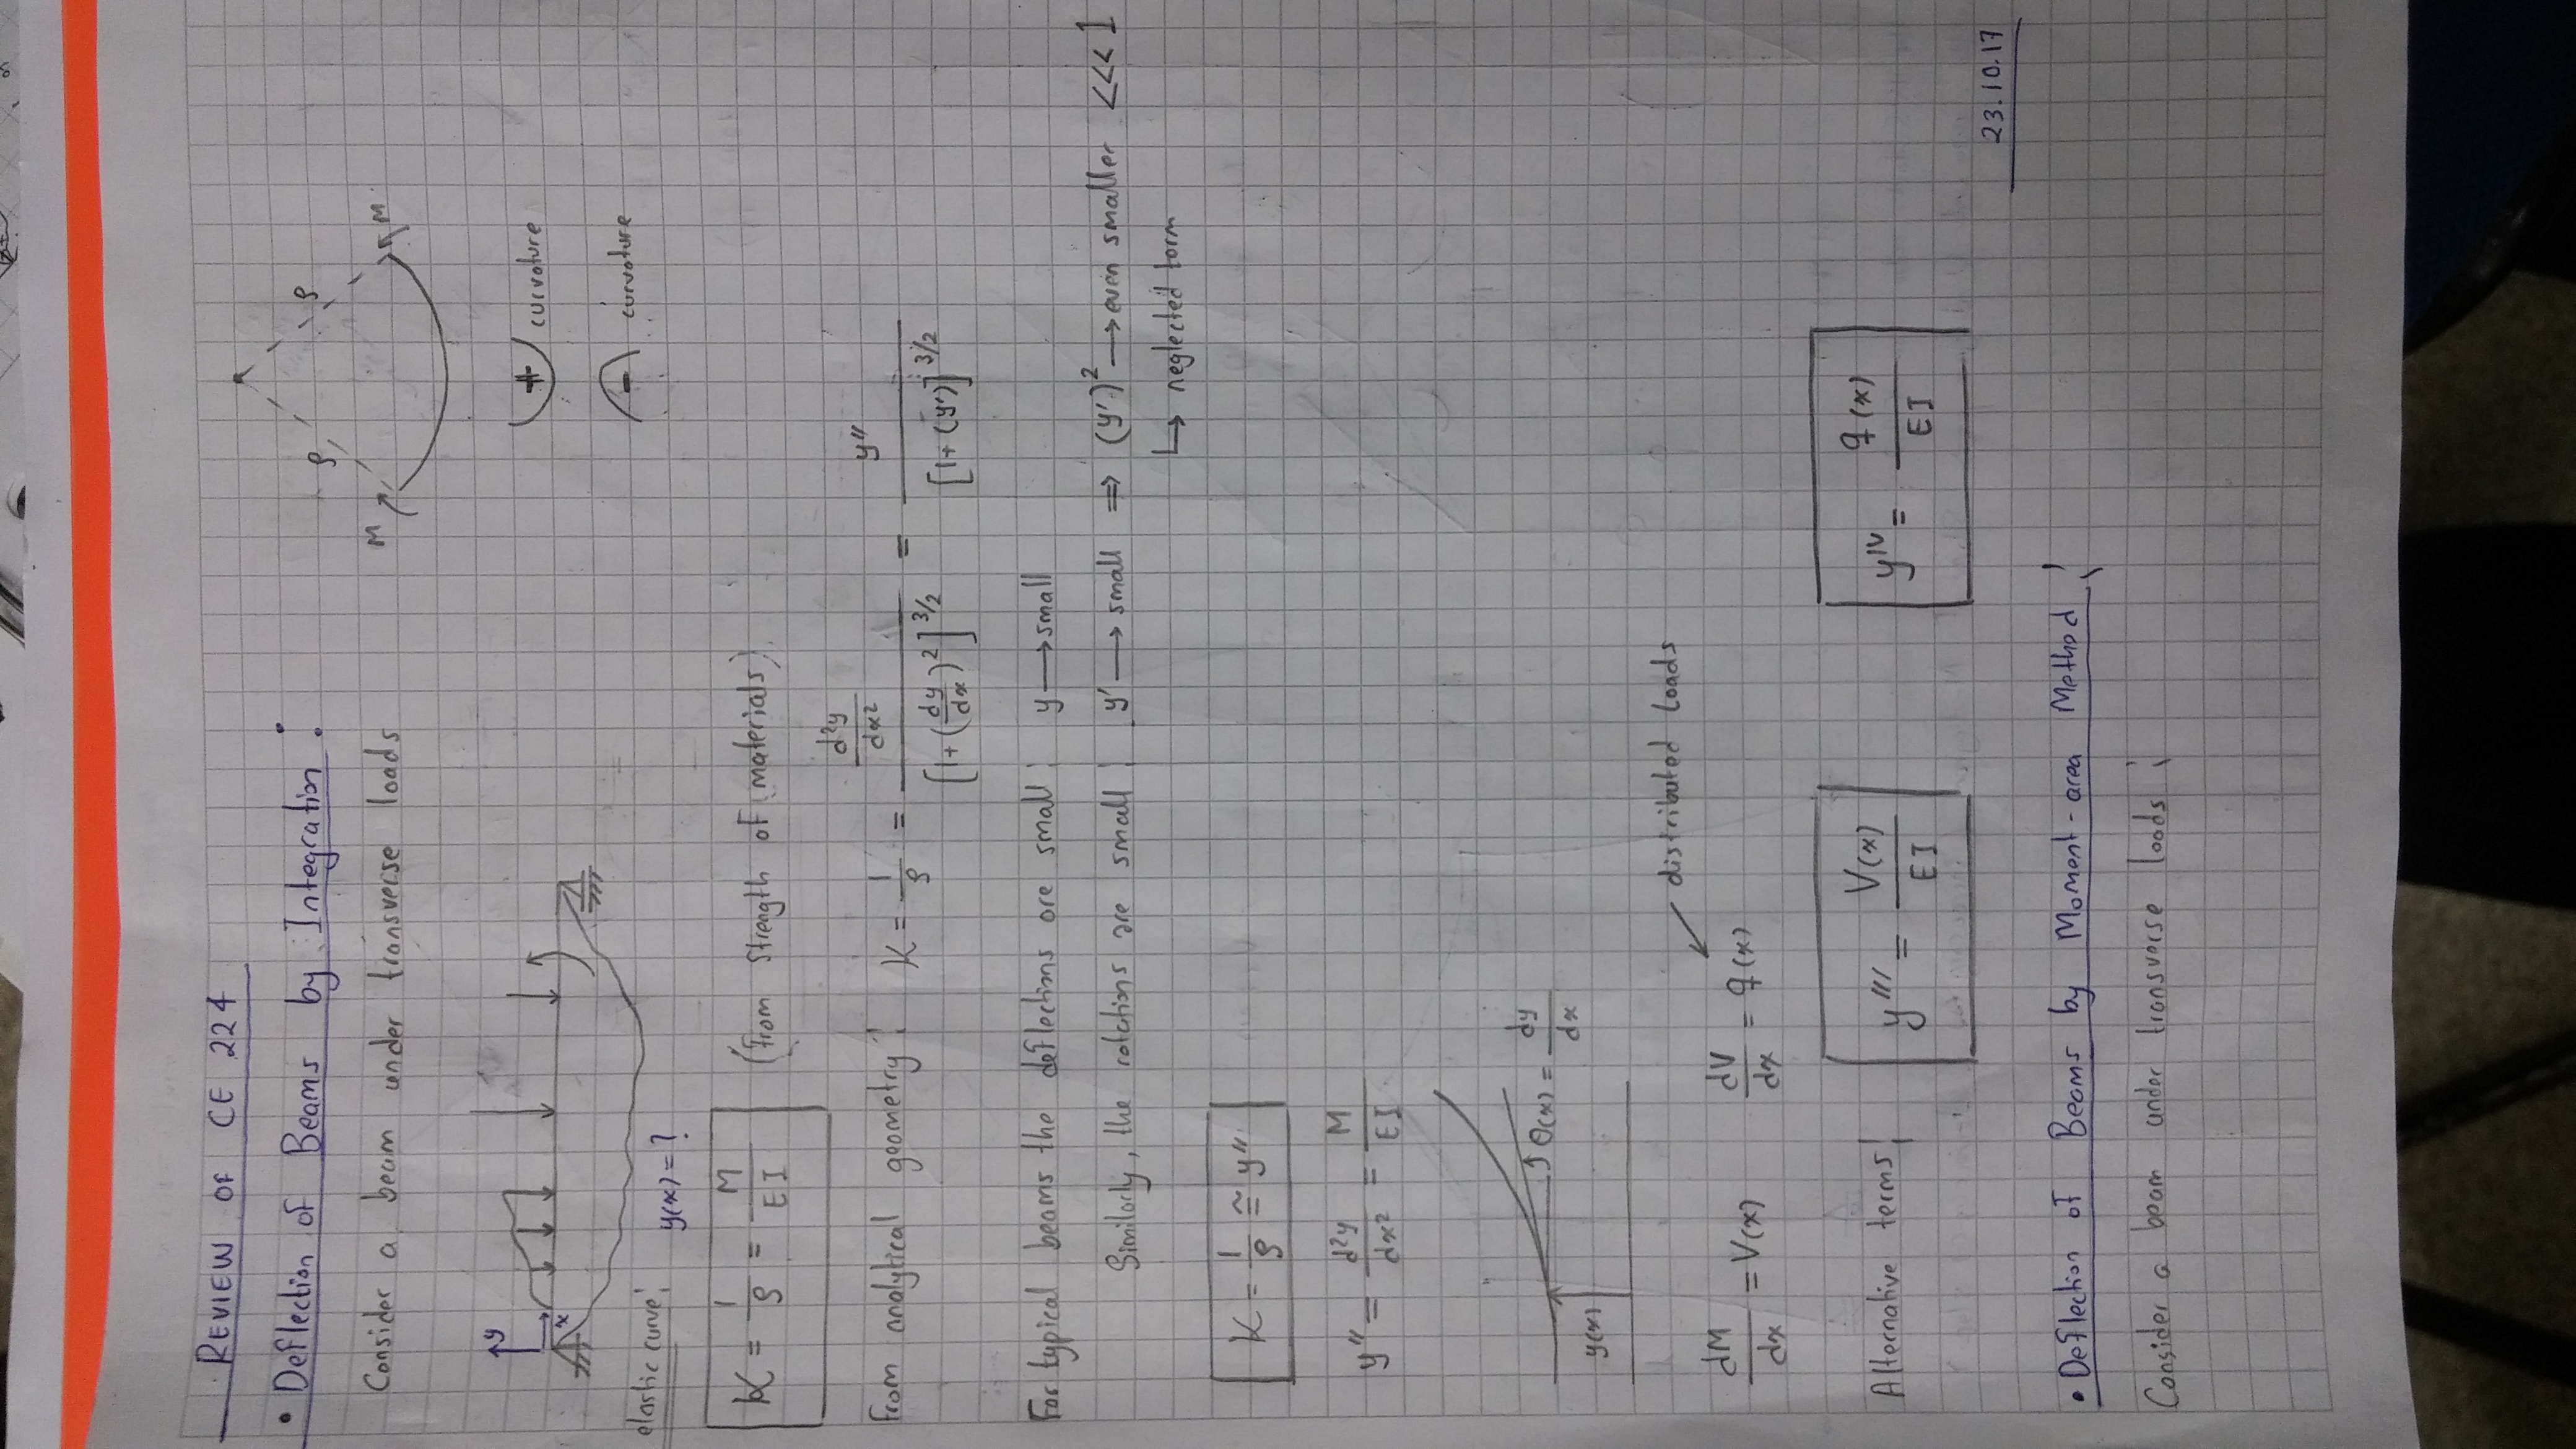 REVIEW OF CE 224
• Deflection of Beams by Integration:
Consider a beam under transverse loads
ρ ρ
M M
y
x
+ curvature
- curvature
elastic curve;
y(x) = ?
K = 1/ρ = M/EI (from strength of materials)
From analytical geometry; K = 1/ρ = (d²y/dx²)/[1+(dy/dx)²]^3/2 = y''/[1+(y')]^3/2
For typical beams the deflections are small; y → small
Similarly, the rotations are small; y' → small ⇒ (y')² → even smaller <<< 1
↳ neglected term
K = 1/ρ ≅ y''
y'' = d²y/dx² = M/EI
θ(x) = dy/dx
y(x)
distributed loads
dM/dx = V(x) dV/dx = q(x)
Alternative terms; y''' = V(x)/EI y^IV = q(x)/EI
23.10.17
• Deflection of Beams by Moment-area Method;
Consider a beam under transverse loads;